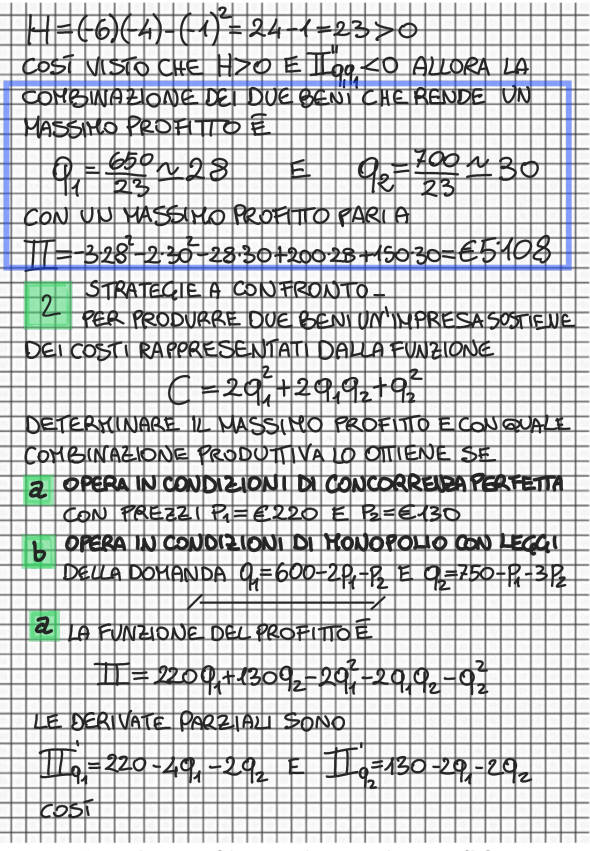 H=(-6)(-4)-(-1)²=24-1=23>0
COSÌ VISTO CHE H>0 E Π''q₁q₁<0 ALLORA LA
COMBINAZIONE DEI DUE BENI CHE RENDE UN
MASSIMO PROFITTO È
q₁=650/23≃28 E q₂=700/23≃30
CON UN MASSIMO PROFITTO PARI A
Π=-3·28²-2·30²-28·30+200·28+150·30=€5·108
2 STRATEGIE A CONFRONTO_
PER PRODURRE DUE BENI UN'IMPRESA SOSTIENE
DEI COSTI RAPPRESENTATI DALLA FUNZIONE
C=2q₁²+2q₁q₂+q₂²
DETERMINARE IL MASSIMO PROFITTO E CON QUALE
COMBINAZIONE PRODUTTIVA LO OTTIENE SE
a OPERA IN CONDIZIONI DI CONCORRENZA PERFETTA
CON PREZZI P₁=€220 E P₂=€130
b OPERA IN CONDIZIONI DI MONOPOLIO CON LEGGI
DELLA DOMANDA q₁=600-2P₁-P₂ E q₂=750-P₁-3P₂
a LA FUNZIONE DEL PROFITTO È
Π=220q₁+130q₂-2q₁²-2q₁q₂-q₂²
LE DERIVATE PARZIALI SONO
Π'q₁=220-4q₁-2q₂ E Π'q₂=130-2q₁-2q₂
COSÌ